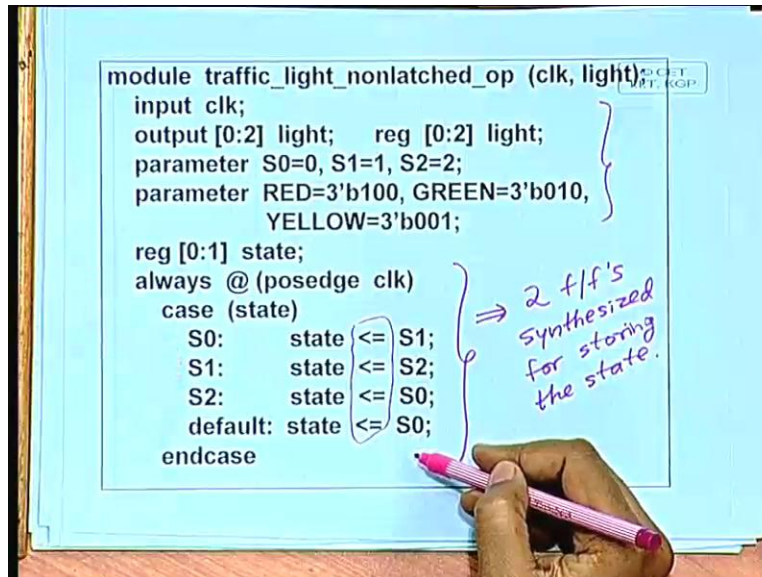 module traffic_light_nonlatched_op (clk, light);
input clk;
output [0:2] light; reg [0:2] light;
parameter S0=0, S1=1, S2=2;
parameter RED=3'b100, GREEN=3'b010,
YELLOW=3'b001;
reg [0:1] state;
always @ (posedge clk)
case (state)
S0: state <= S1;
S1: state <= S2;
S2: state <= S0;
default: state <= S0;
endcase
⇒ 2 f/f's
synthesized
for storing
the state.
KGP